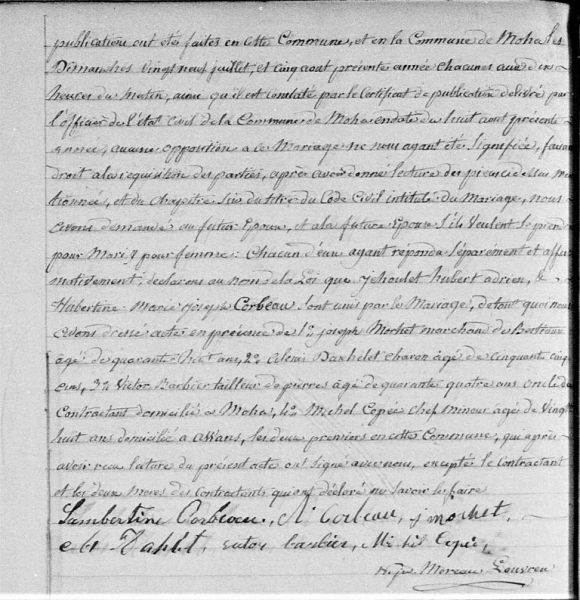 publications ont étés faites en cette Commune, et en la Commune de Moha les
Dimanches vingt neuf juillet, et cinq aout présente année chacunes aux dix
heures du Matin, ainsi qu'il est constaté par le Certificat de publication délivré par
l'officier de l'état civil de la Commune de Moha en date du huit aout présente
année, aucune opposition a ce Mariage ne nous ayant été signifiée, faisant
droit a la réquisition des parties, après avoir donné lecture des pieces ci dessus men
tionnées, et du chapitre Six du titre du Code Civil intitulé: du Mariage, nous
avons demandé au futur Epoux, et a la future Epouse s'ils veulent se prendre
pour Mari & pour femme: Chacun d'eux ayant répondu séparément et affir
mativement; declarons au nom de la Loi que hubert adrien, &
Hubertine Marie joseph Corbeau sont unis par le Mariage, de tout quoi nous
avons dressé acte en présence de 1° joseph Mochet marchand de
agé de quarante huit ans, 2° Daxhelet charon agé de cinquante cinq
ans, 3° Victor Barbier tailleur de pierres agé de quarante quatre ans oncle du
Contractant domicilié a Moha, 4° Michel Copée chef mineur agée de Vingt
huit ans domicilié a awans, les deux premiers en cette Commune; qui après
avoir recu lecture du présent acte ont signé avec nous, exceptés le Contractant
et les deux meres des Contractants qui ont déclaré ne savoir le faire
Lambertine Corbeau, N. Corbeau, j mochet,
barbier, Michel Copée,
Moreau